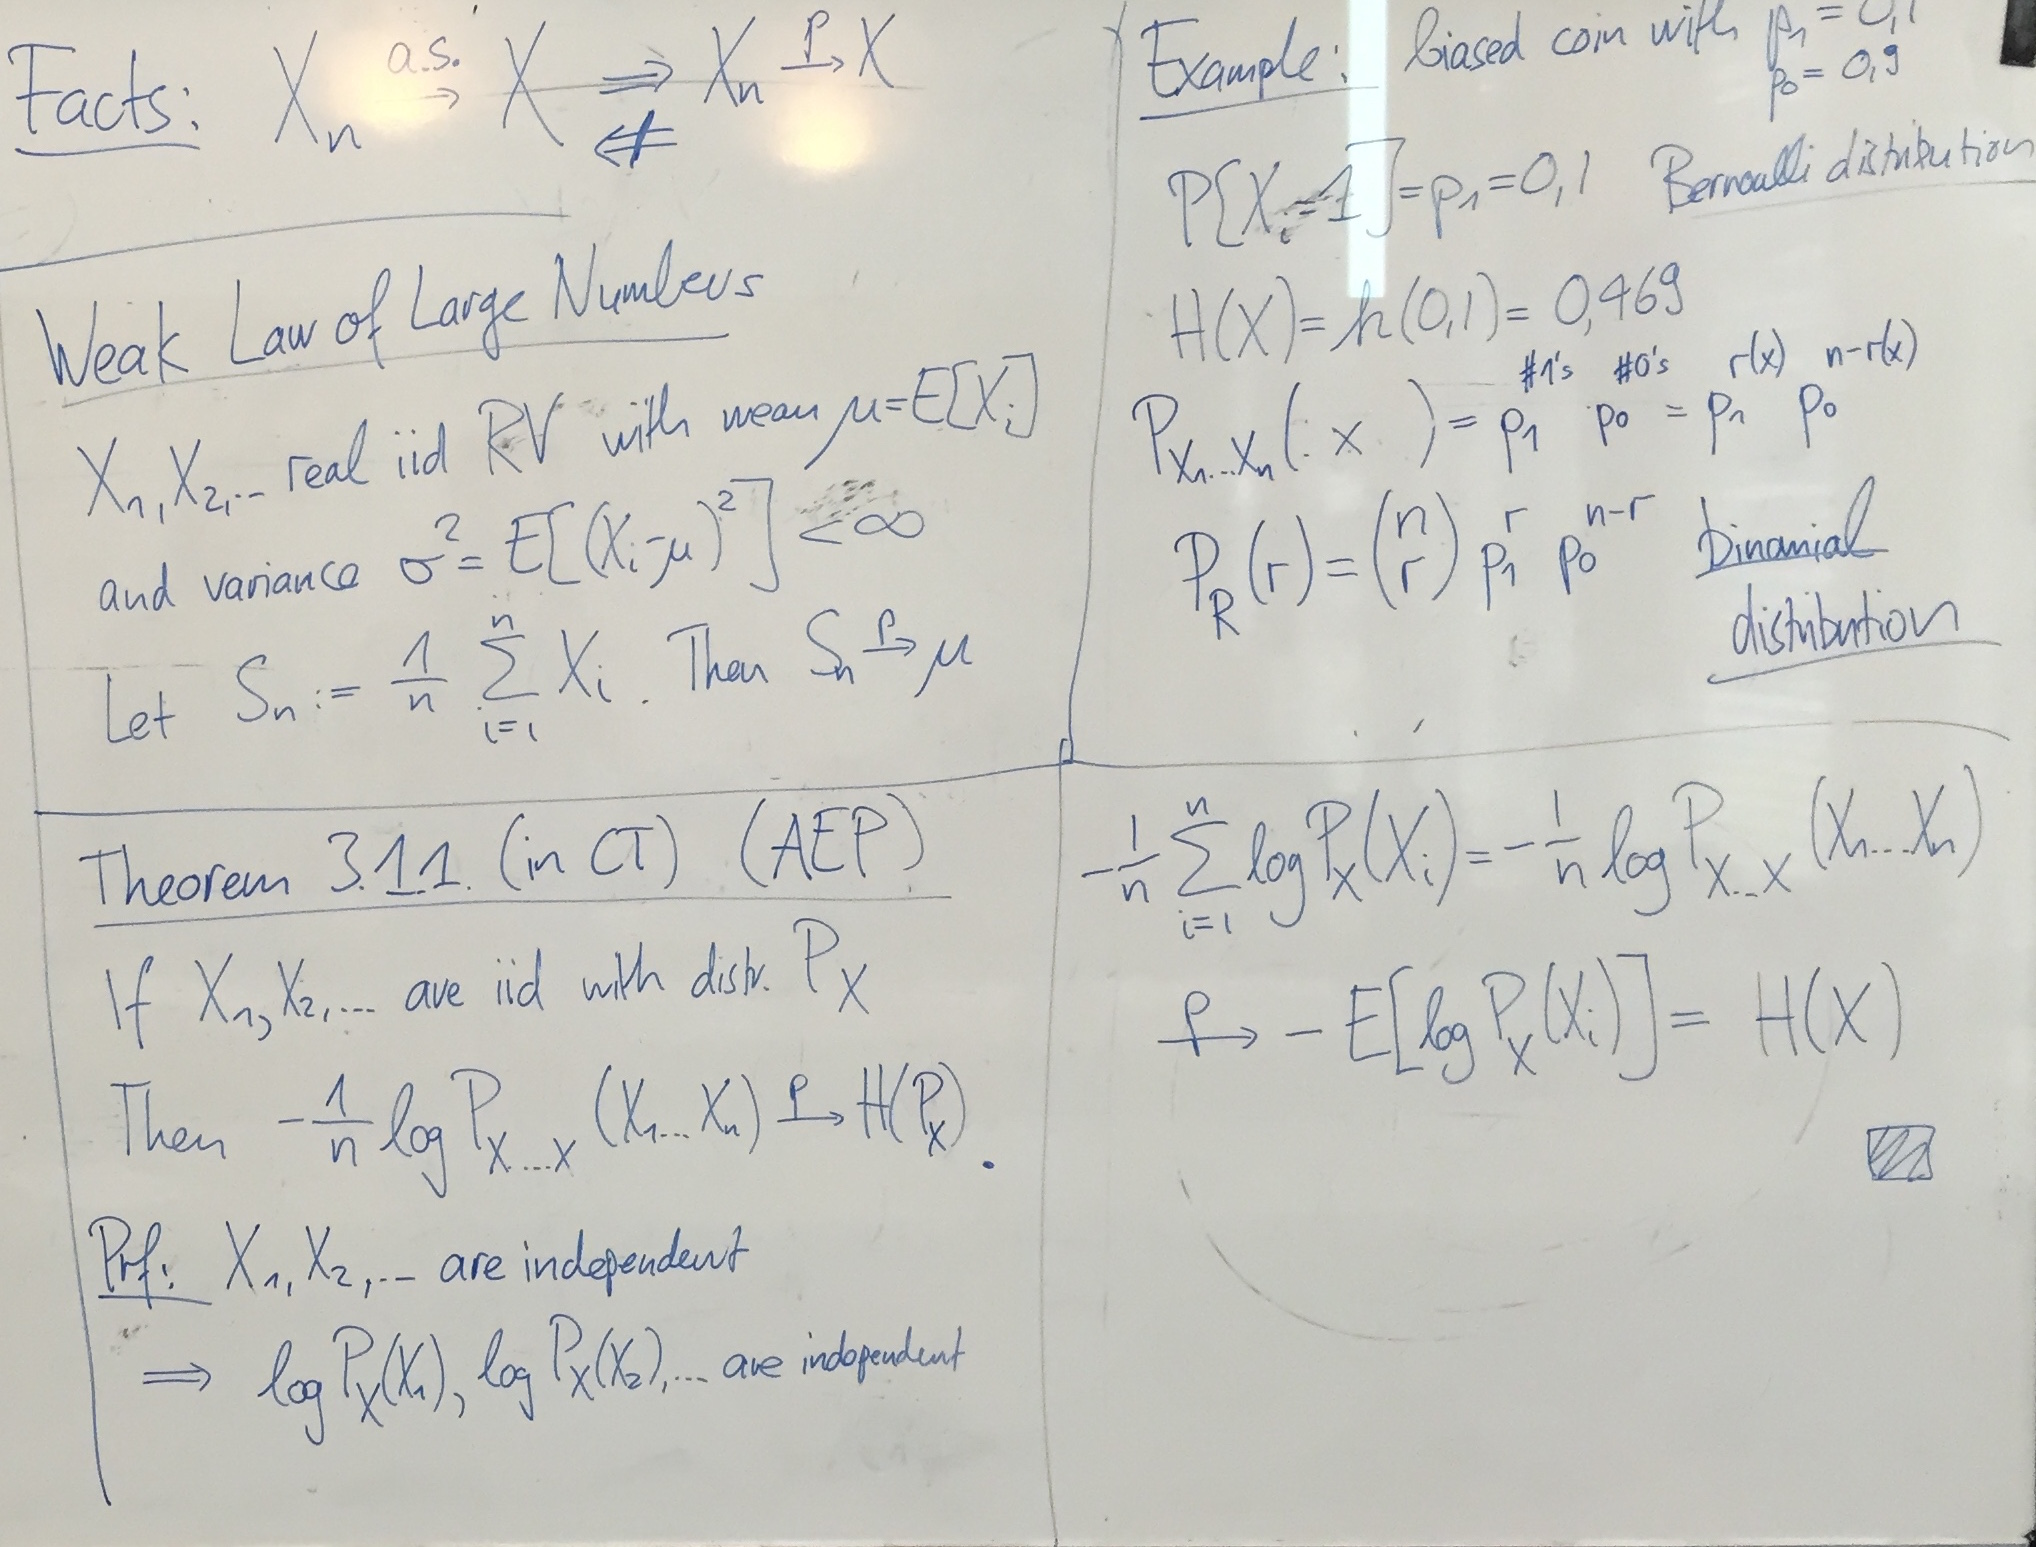 Facts: Xₙ a.s.→ X ⟹ Xₙ P→ X
⇍
Weak Law of Large Numbers
X₁, X₂,... real iid RV with mean μ=E[Xᵢ]
and variance σ² = E[(Xᵢ-μ)²] < ∞
Let Sₙ := 1/n Σᵢ₌₁ⁿ Xᵢ. Then Sₙ P→ μ
Theorem 3.1.1. (in CT) (AEP)
If X₁, X₂,... are iid with distr. P_X
Then -1/n log P_X...X (X₁...Xₙ) P→ H(P_X).
Prf: X₁, X₂,... are independent
⟹ log P_X(X₁), log P_X(X₂),... are independent
Example: biased coin with p₁ = 0,1
p₀ = 0,9
P[Xᵢ=1] = p₁ = 0,1 Bernoulli distribution
H(X) = h(0,1) = 0,469
P_X₁...Xₙ(x) = p₁^#1's p₀^#0's = p₁^r(x) p₀^n-r(x)
P_R(r) = (n r) p₁^r p₀^n-r binomial
distribution
-1/n Σᵢ₌₁ⁿ log P_X(Xᵢ) = -1/n log P_X...X (X₁...Xₙ)
P→ - E[log P_X(Xᵢ)] = H(X)